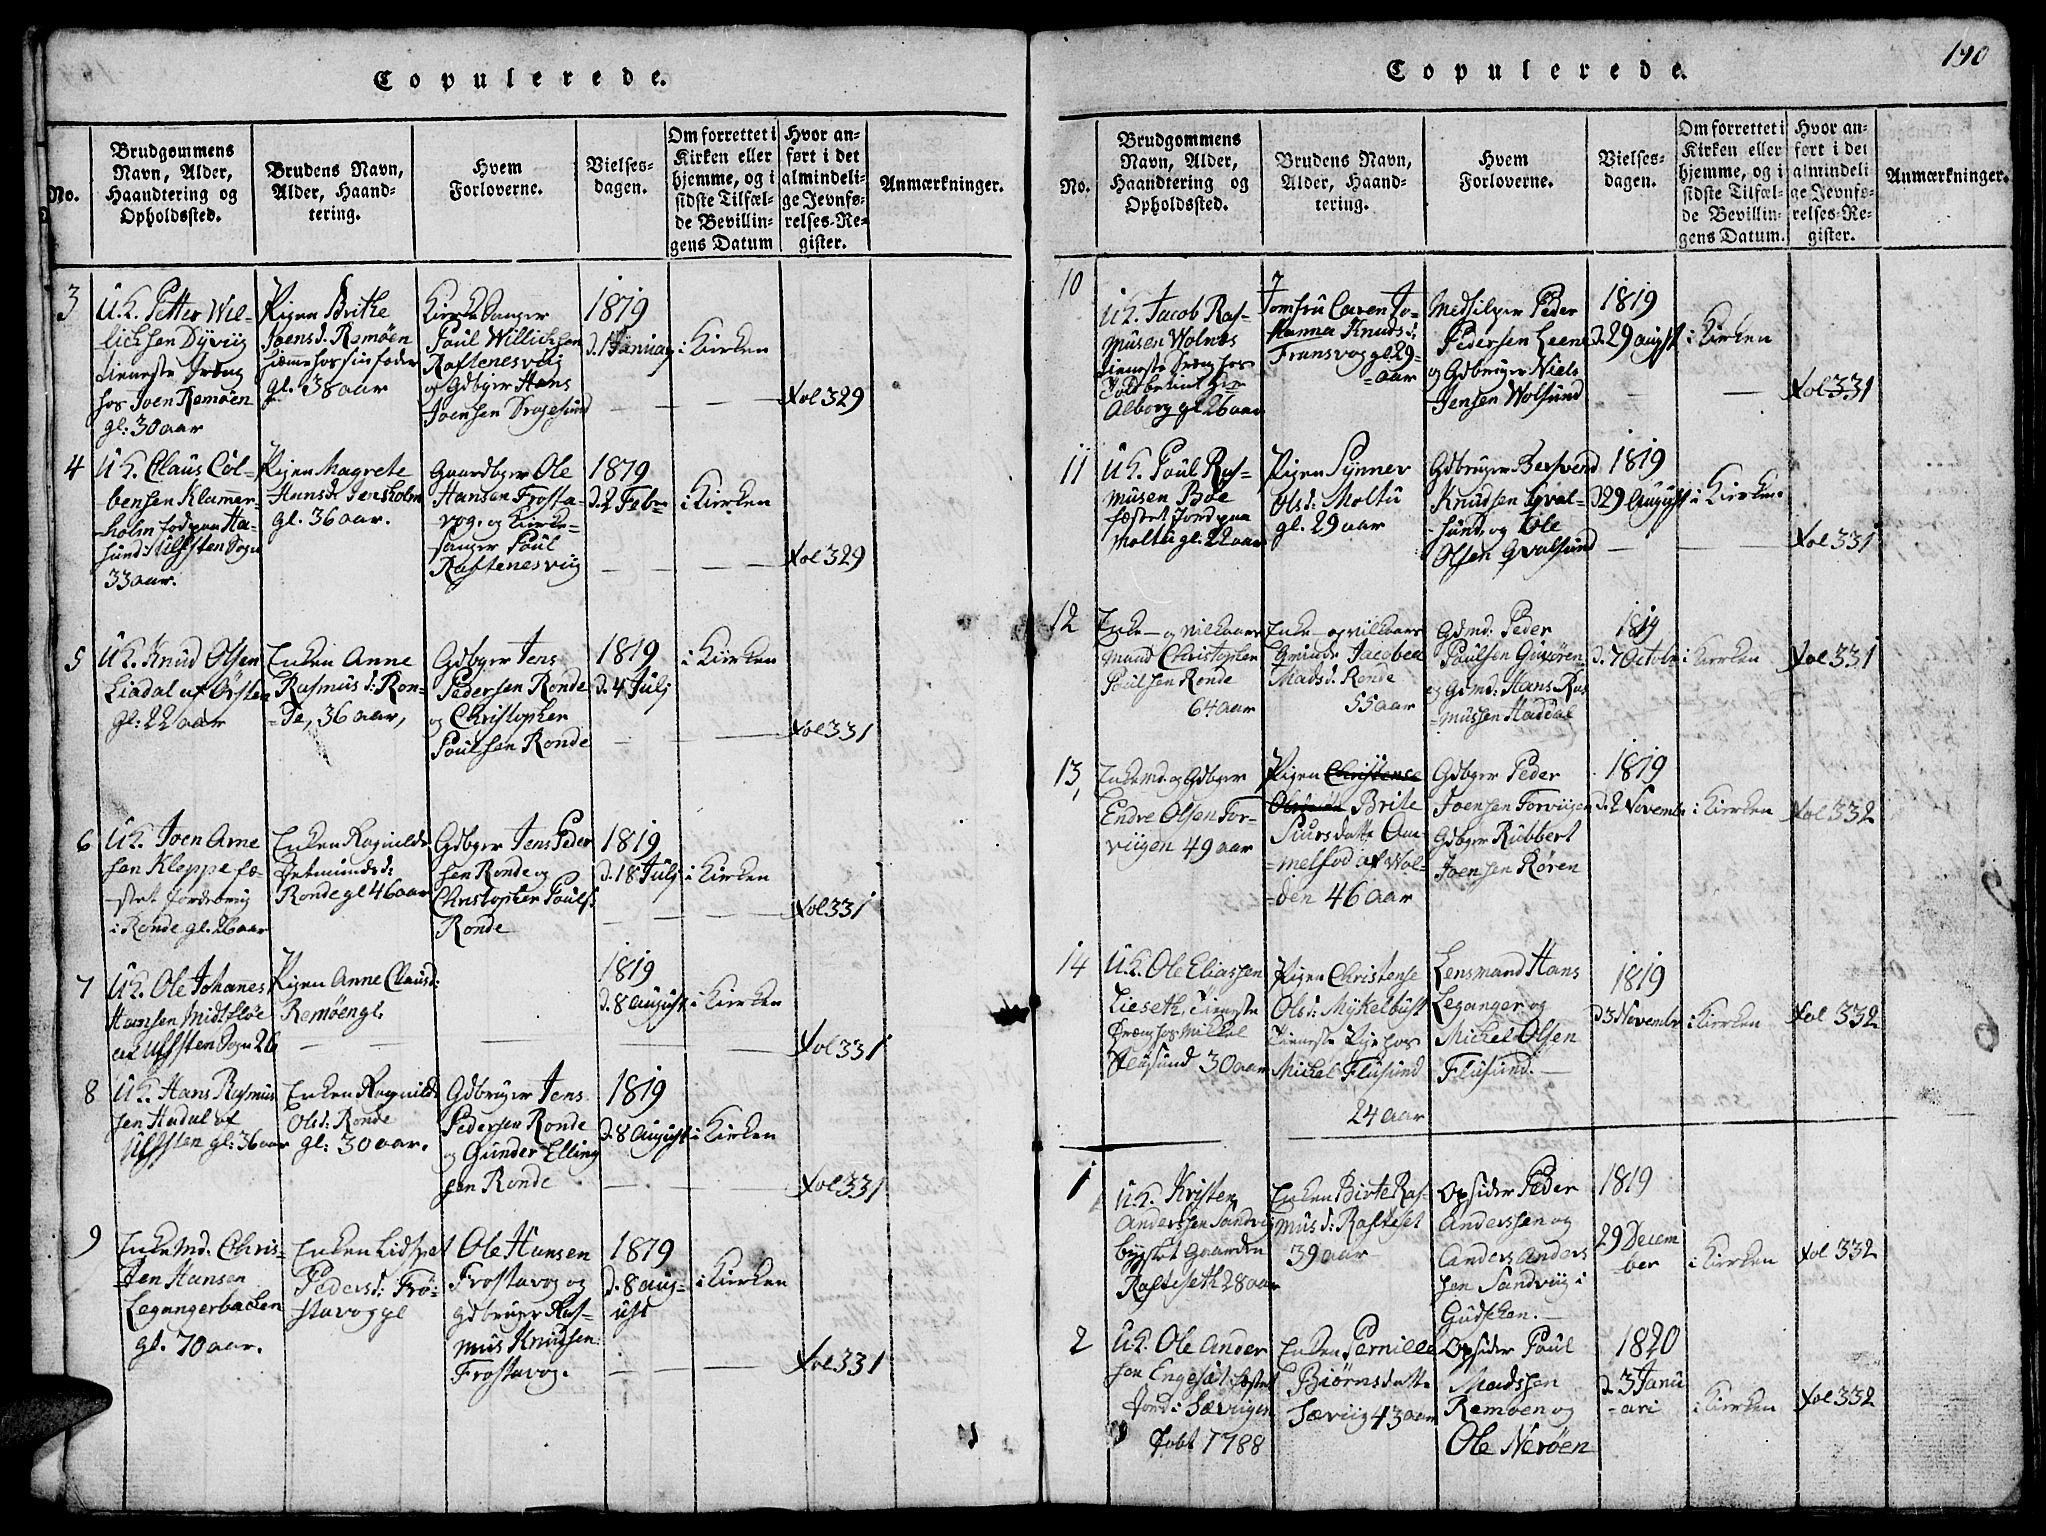 Copulerede.
No.
Brudgommens
Navn, Alder,
Haandtering og
Opholdssted.
Brudens Navn,
Alder, Haand-
tering.
Hvem
Forloverne.
Vielses-
dagen.
Om forrettet i
Kirken eller
hjemme, og i
sidste Tilfæl-
de Bevillin-
gens Datum
Hvor an-
ført i det
almindeli-
ge Jevnfø-
relses-Re-
gister.
Anmærkninger.
3
U.K. Petter Wil-
lichsen Dyviig
tieneste Dreng
hos Joen Remöen
gl: 30 aar
Pigen Brithe
Joensd. Remöen
hiemme hos sin fader
gl. 38 aar
Kirkesanger
Poul Willichsen
Raftenesviig
og Gdbger Hans
Joensen Dragesund
1819
d. 1 Januar
i Kirken
Fol 329
4
U.K. Claus Col-
bensen Klammer-
holm fod paa Ha-
sund: Ulfsten Sogn
33 aar.
Pigen Magrete
Hansd: Jensholm
gl. 36 aar.
Gaardbger Ole
Hansen Frosta-
vog, og Kirke-
sanger Poul
Raftenesviig
1819
d. 2 Febr
i Kirken
Fol 329
5
U.K. Knud Olsen
Liadal af Örsten
gl: 22 aar
Enken Anne
Rasmusd: Ron-
de, 36 aar,
Gdbger Jens
Pedersen Ronde
og Christopher
Poulsen Ronde
1819
d. 4 Julj
i Kirken
Fol 331
6
U.K. Joen Arne
sen Kleppe fæ-
stet Jordebrug
i Ronde gl. 26 aar
Enken Ragnilde
Ronde gl 46 aar
Gdbger Jens Peder
sen Ronde og
Christopher Pouls:
Ronde
1819
d. 18 Julj
i Kirken
Fol 331
7
U.K. Ole Johannes
Hansen Midtflöe
af Ulfsten Sogn 26
Pigen Anne Clausd:
Remöen gl.
1819
d. 8 august
i Kirken
Fol 331
8
U.K. Hans Rasmus
sen Hadal af
Ulfsten gl: 36 aar
Enken Ragnilde
Olsd: Ronde
gl: 30 aar.
Gdbruger Jens
Pedersen Ronde
og Gunder Elling
sen Ronde
1819
d. 8 August
i Kirken
Fol 331
9
Enkemd. Chris-
ten Hansen
Legangerbacken
gl. 70 aar.
Enken Lidspet
Pedersd: Frö-
stavog gl
Ole Hansen
Frostavog og
gdbruger Ras-
mus Knudsen
Frostavog.
1819
d. 8 aug-
ust
i Kirken
Fol 331
Copulerede.
190
No.
Brudgommens
Navn, Alder,
Haandtering og
Opholdssted.
Brudens Navn,
Alder, Haand-
tering.
Hvem
Forloverne.
Vielses-
dagen.
Om forrettet i
Kirken eller
hjemme, og i
sidste Tilfæl-
de Bevillin-
gens Datum.
Hvor an-
ført i det
almindeli
ge Jevnfø-
relses-Re-
gister.
Anmærkninger.
10
U.K. Jacob Ras-
musen Wolnes
tieneste Dreng hos
Alborg gl 26 aar
Jomfru Caren Jo-
Hanna Knudsd:
Fransvog gl 29
aar
Medhilper Peder
Pedersen Leene
og Gdbruger Niels
Jensen Wolsund
1819
d. 29 august
i Kirken
Fol 331
11
U.K. Poul Ras-
musen Böe
fæstet Jord paa
Moltu gl. 22 aar
Pigen Synner
Olsd: Moltu
gl. 29 aar
Gdbruger Bersvend
Knudsen Qval-
sund, og Ole
Olsen Qvalsund
1819
d 29 August
i Kirken
Fol 331
12
Enke- og Vilkaars
mand Christopher
Poulsen Ronde
64 aar
Enke- og vilkaars
Qvinde Jacobea
Madsd: Ronde
55 aar
Gdmd: Peder
Poulsen Gursören
og Gdmd: Hans Ras
mussen Haddal
1819
d. 7 Octobr
i Kirken
Fol 331
13,
Enkemd. og Gdbger
Endre Olsen Tor-
viigen 49 aar
Pigen Christense
Brite
Siursdatte Aa-
melfod af Wol-
den 46 aar
Gdbger Peder
Joensen Torviigen
Gdbger Rubbert
Joensen Rören
1819
d. 2 Novembr
i Kirken
Fol 332
14
U.K. Ole Eliassen
Lieseth, Tieneste
Dreng hos Mikkel
Flusund 30 aar
Pigen Christense
Olsd: Mykelbust
Tieneste Pige hos
Mickel Flusund
24 aar
Lensmand Hans
Leganger og
Mickel Olsen
Flusund.
1819
d 3 Novembr
i Kirken
Fol 332
1
U.K. Kristen
Anderssen Sandviig
bygslet gaarden
Rafteseth 28 aar
Enken Birte Ras-
musd: Rafteset
39 aar
Opsider Peder
Anderssen og
Anders Anders
sen Sandviig i
Gudsken.
1819
29 Decem
ber
i Kirken
Fol 332
2
U.K. Ole Ander
sen Engeset fæstet
Jord i Sævigen
Födt 1788
Enken Pernille
Biörnsdatte
Sæviig 43 aar
Opsider Poul
Madssen
Remöen og
Ole Neröen
1820
d. 3 Janu
ari
i Kirken
Fol 332